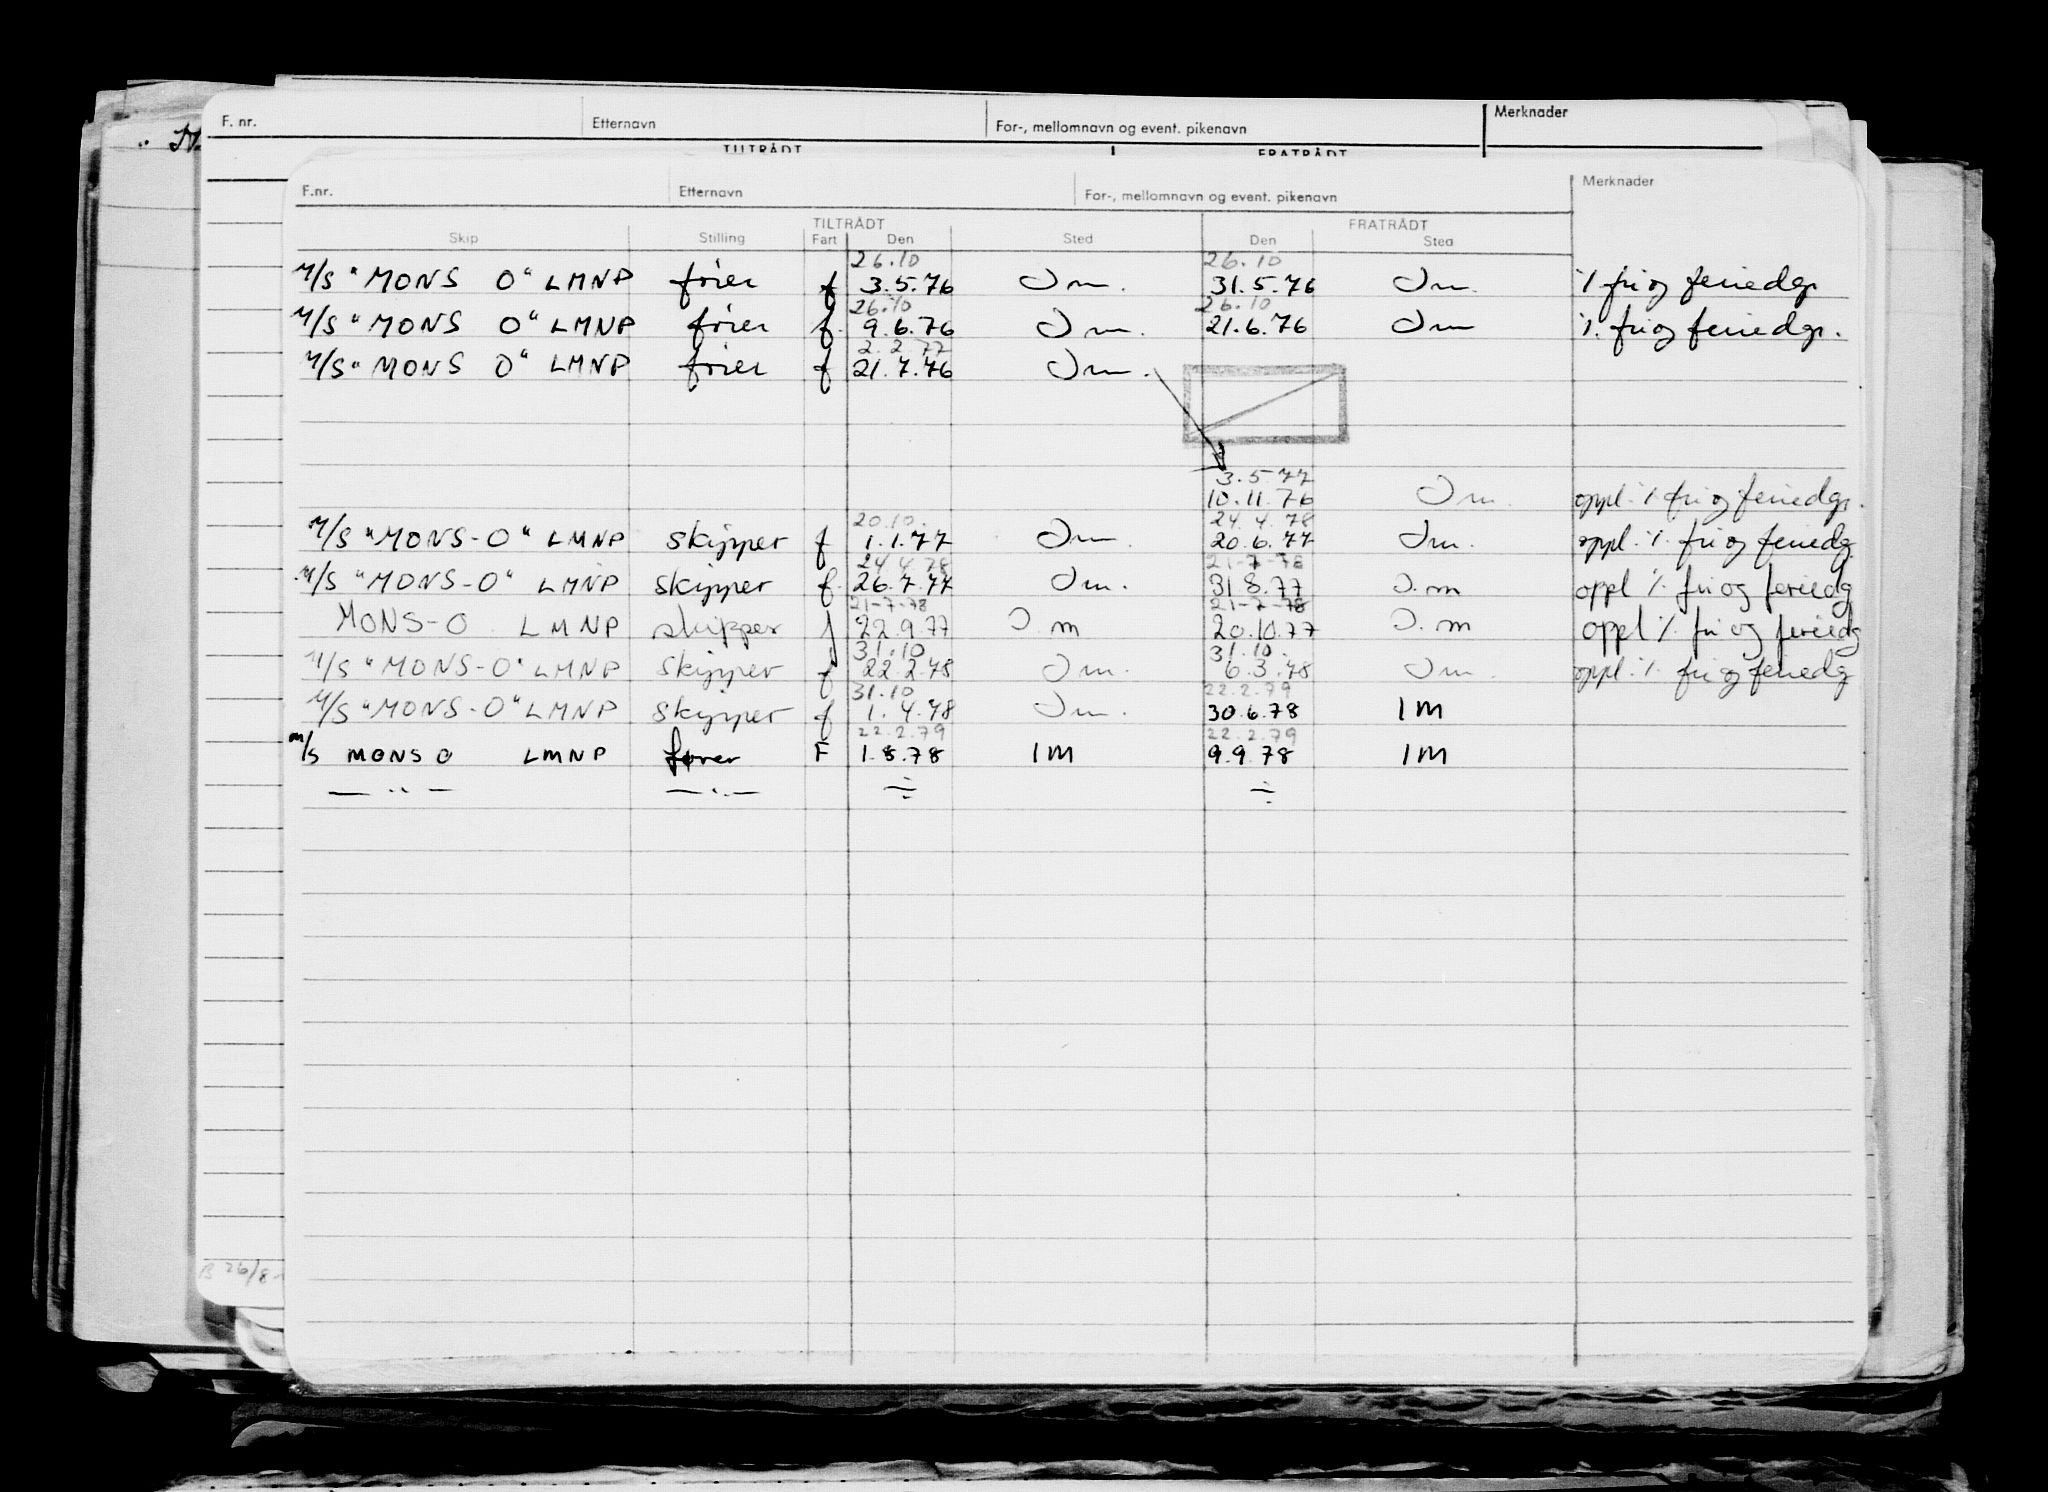 F. nr. Etternavn For-, mellomnavn og event. pikenavn Merknader
TILTRÅDT FRATRÅDT
F.nr. Etternavn For-, mellomnavn og event. pikenavn Merknader
TILTRÅDT FRATRÅDT
Skip Stilling Fart Den Sted Den Sted
26.10 26.10
M/S "MONS O" LMNP fører f 3.5.76 Im. 31.5.76 Im. % fri og feriedgr
26.10 26.10
M/S "MONS O" LMNP fører f. 9.6.76 Im. 21.6.76 Im % fri og feriedgr.
2.2.77
M/S "MONS O" LMNP fører f 21.7.76 Im.
3.5.77
10.11.76 Im. oppl. % fri og feriedgr.
20.10. 24.4.78
M/S "MONS-O" LMNP skipper f 1.1.77 Im. 20.6.77 Im. oppl. % fri og feriedg
24.4.78 21-7-78
M/S "MONS-O" LMNP skipper f. 26.7.77 Im. 31.8.77 I.m oppl % fri og feriedg
21-7-78 21-7-78
MONS-O LMNP skipper f 22.9.77 I.m 20.10.77 I.m oppl % fri og feriedg
31.10 31.10.
M/S "MONS-O" LMNP skipper f 22.2.78 Im. 6.3.78 Im. oppl. % fri og feriedg
31.10 22.2.79
M/S "MONS-O" LMNP skipper f 1.4.78 Im. 30.6.78 IM
22.2.79 22.2.79
m/s MONS O LMNP fører F 1.8.78 IM 9.9.78 IM
— " — — " — ÷ ÷
B 26/8-